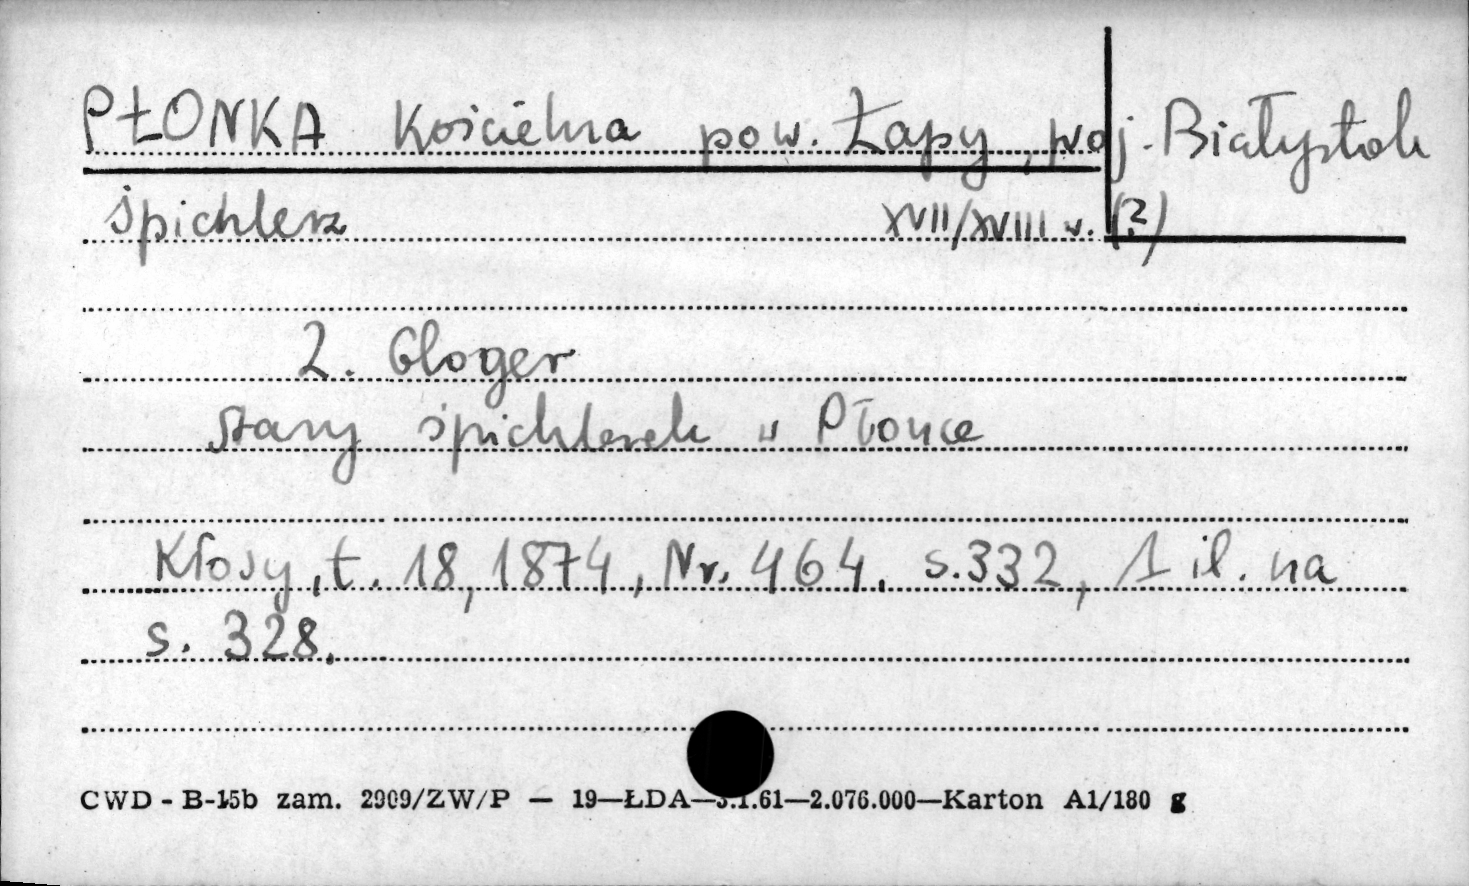 PŁONKA Kościelna pow. Łapy, woj. Białystok
śpichlerz XVII/XVIII w. (?)
Z. Gloger
stary śpichlerek w Płonce
Kłosy, t. 18, 1874, Nr. 464, s. 332, 1 il. na
s. 328.
CWD - B-15b zam. 2909/ZW/P — 19—ŁDA—3.1.61—2.076.000—Karton A1/180 g